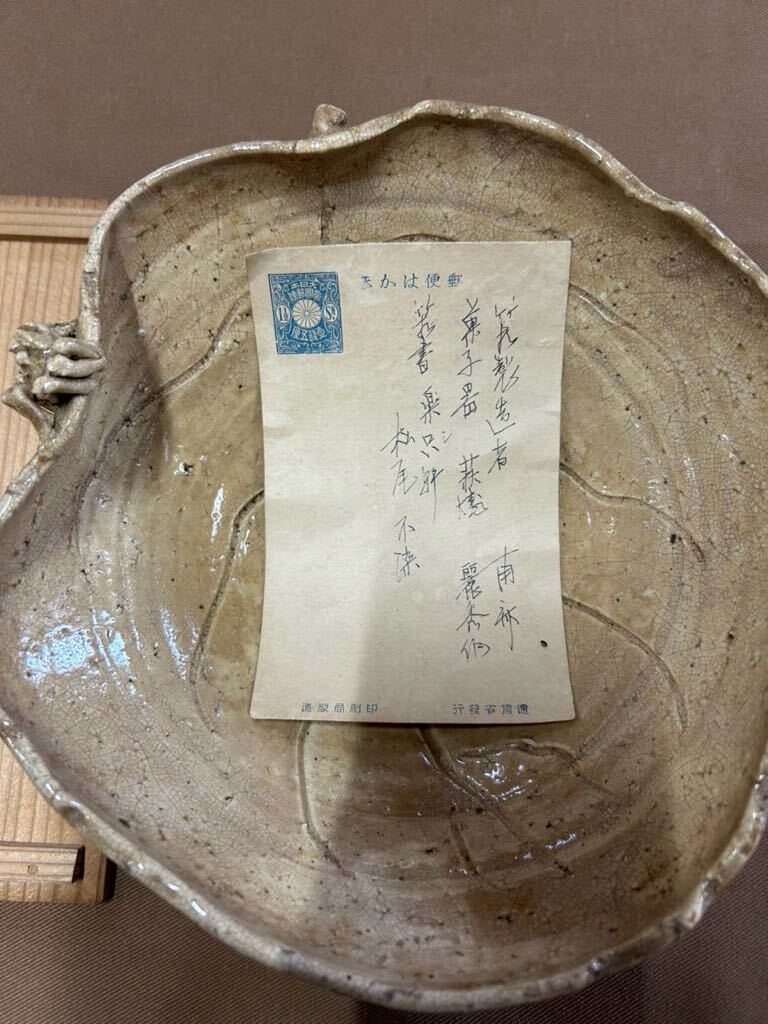 郵便はかき
大日本
帝國郵便
壹錢五厘
1½ Sn
製造者 南部
菓子器 萩焼 麗香
書 楽只軒
松尾 不染
遞信省發行
印刷局製造